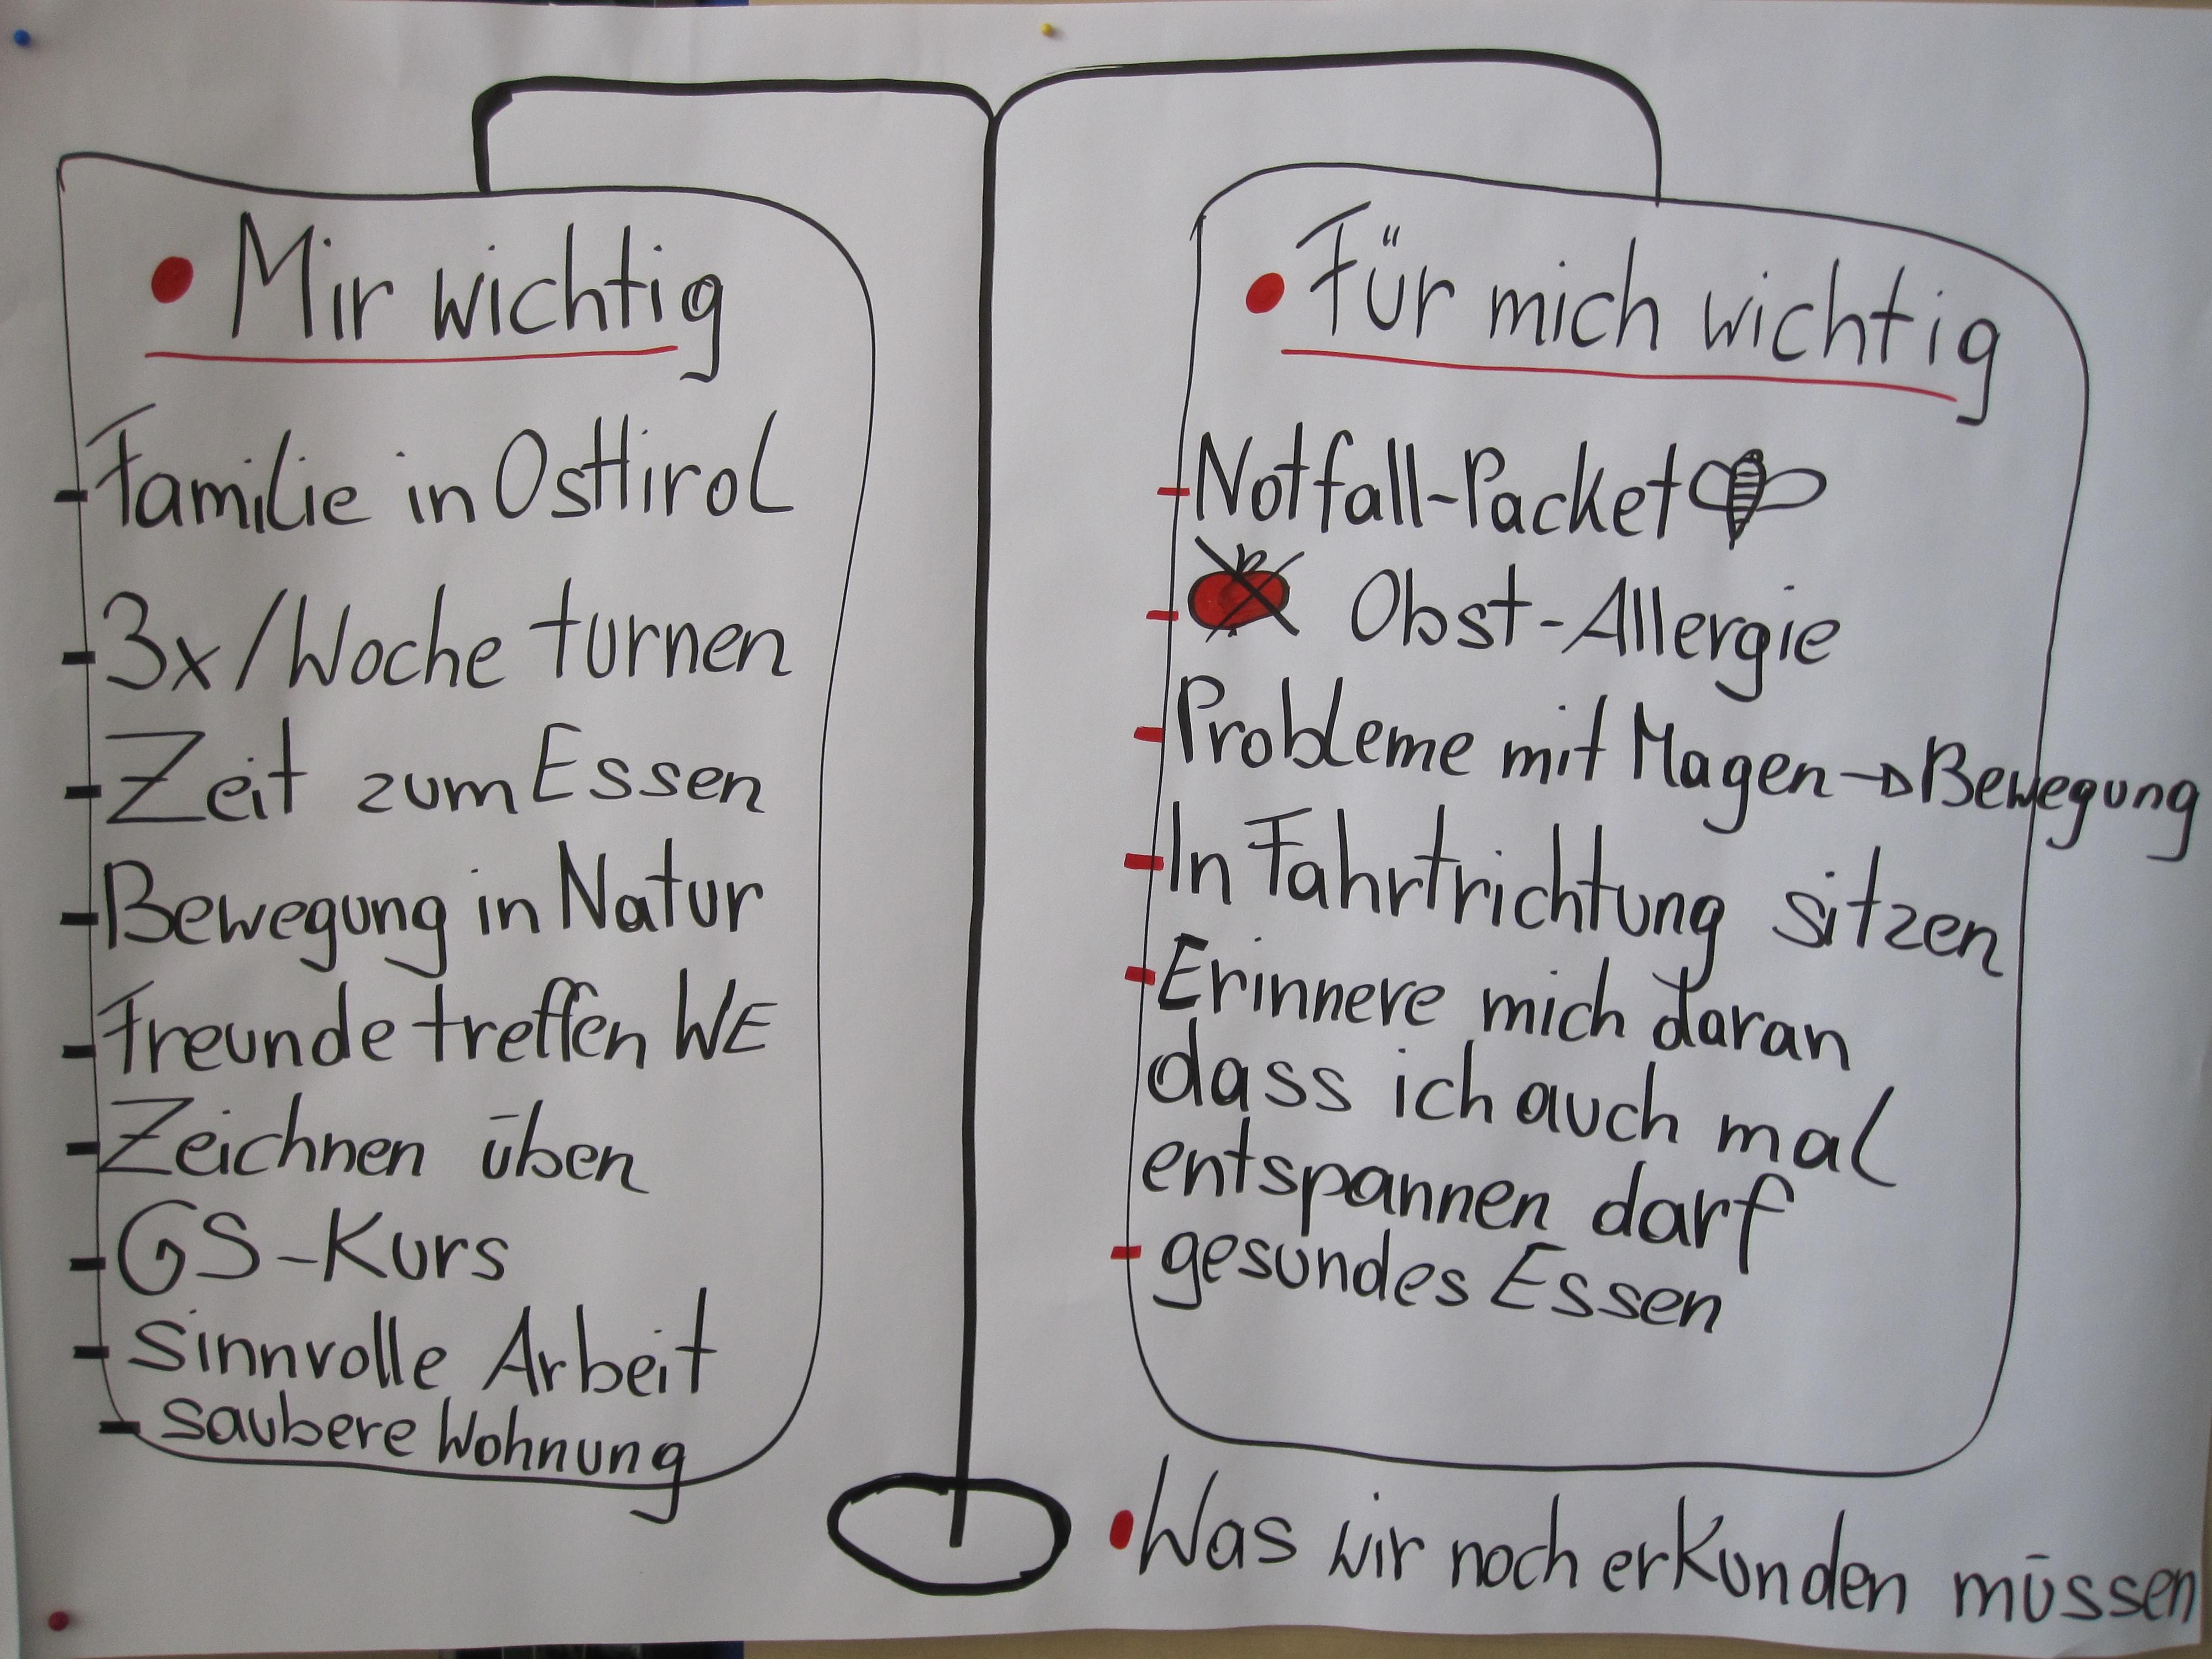 • Mir wichtig
- Familie in Osttirol
- 3x/Woche turnen
- Zeit zum Essen
- Bewegung in Natur
- Freunde treffen WE
- Zeichnen üben
- GS-Kurs
- sinnvolle Arbeit
- saubere Wohnung
• Für mich wichtig
- Notfall-Packet
- Obst-Allergie
- Probleme mit Magen → Bewegung
- In Fahrtrichtung sitzen
- Erinnere mich daran
dass ich auch mal
entspannen darf
- gesundes Essen
• Was wir noch erkunden müssen